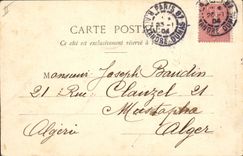 CARTE POSTALE
Ce côté est exclusivement réservé à
PARIS
Monsieur Joseph Baudin
21 Rue Clauzel 21
Mustapha
Algérie Alger